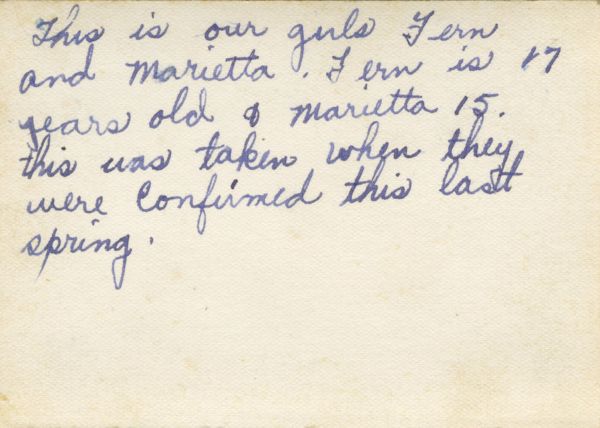 This is our girls Fern
and Marietta. Fern is 17
years old & Marietta 15.
this was taken when they
were Confirmed this last
spring.